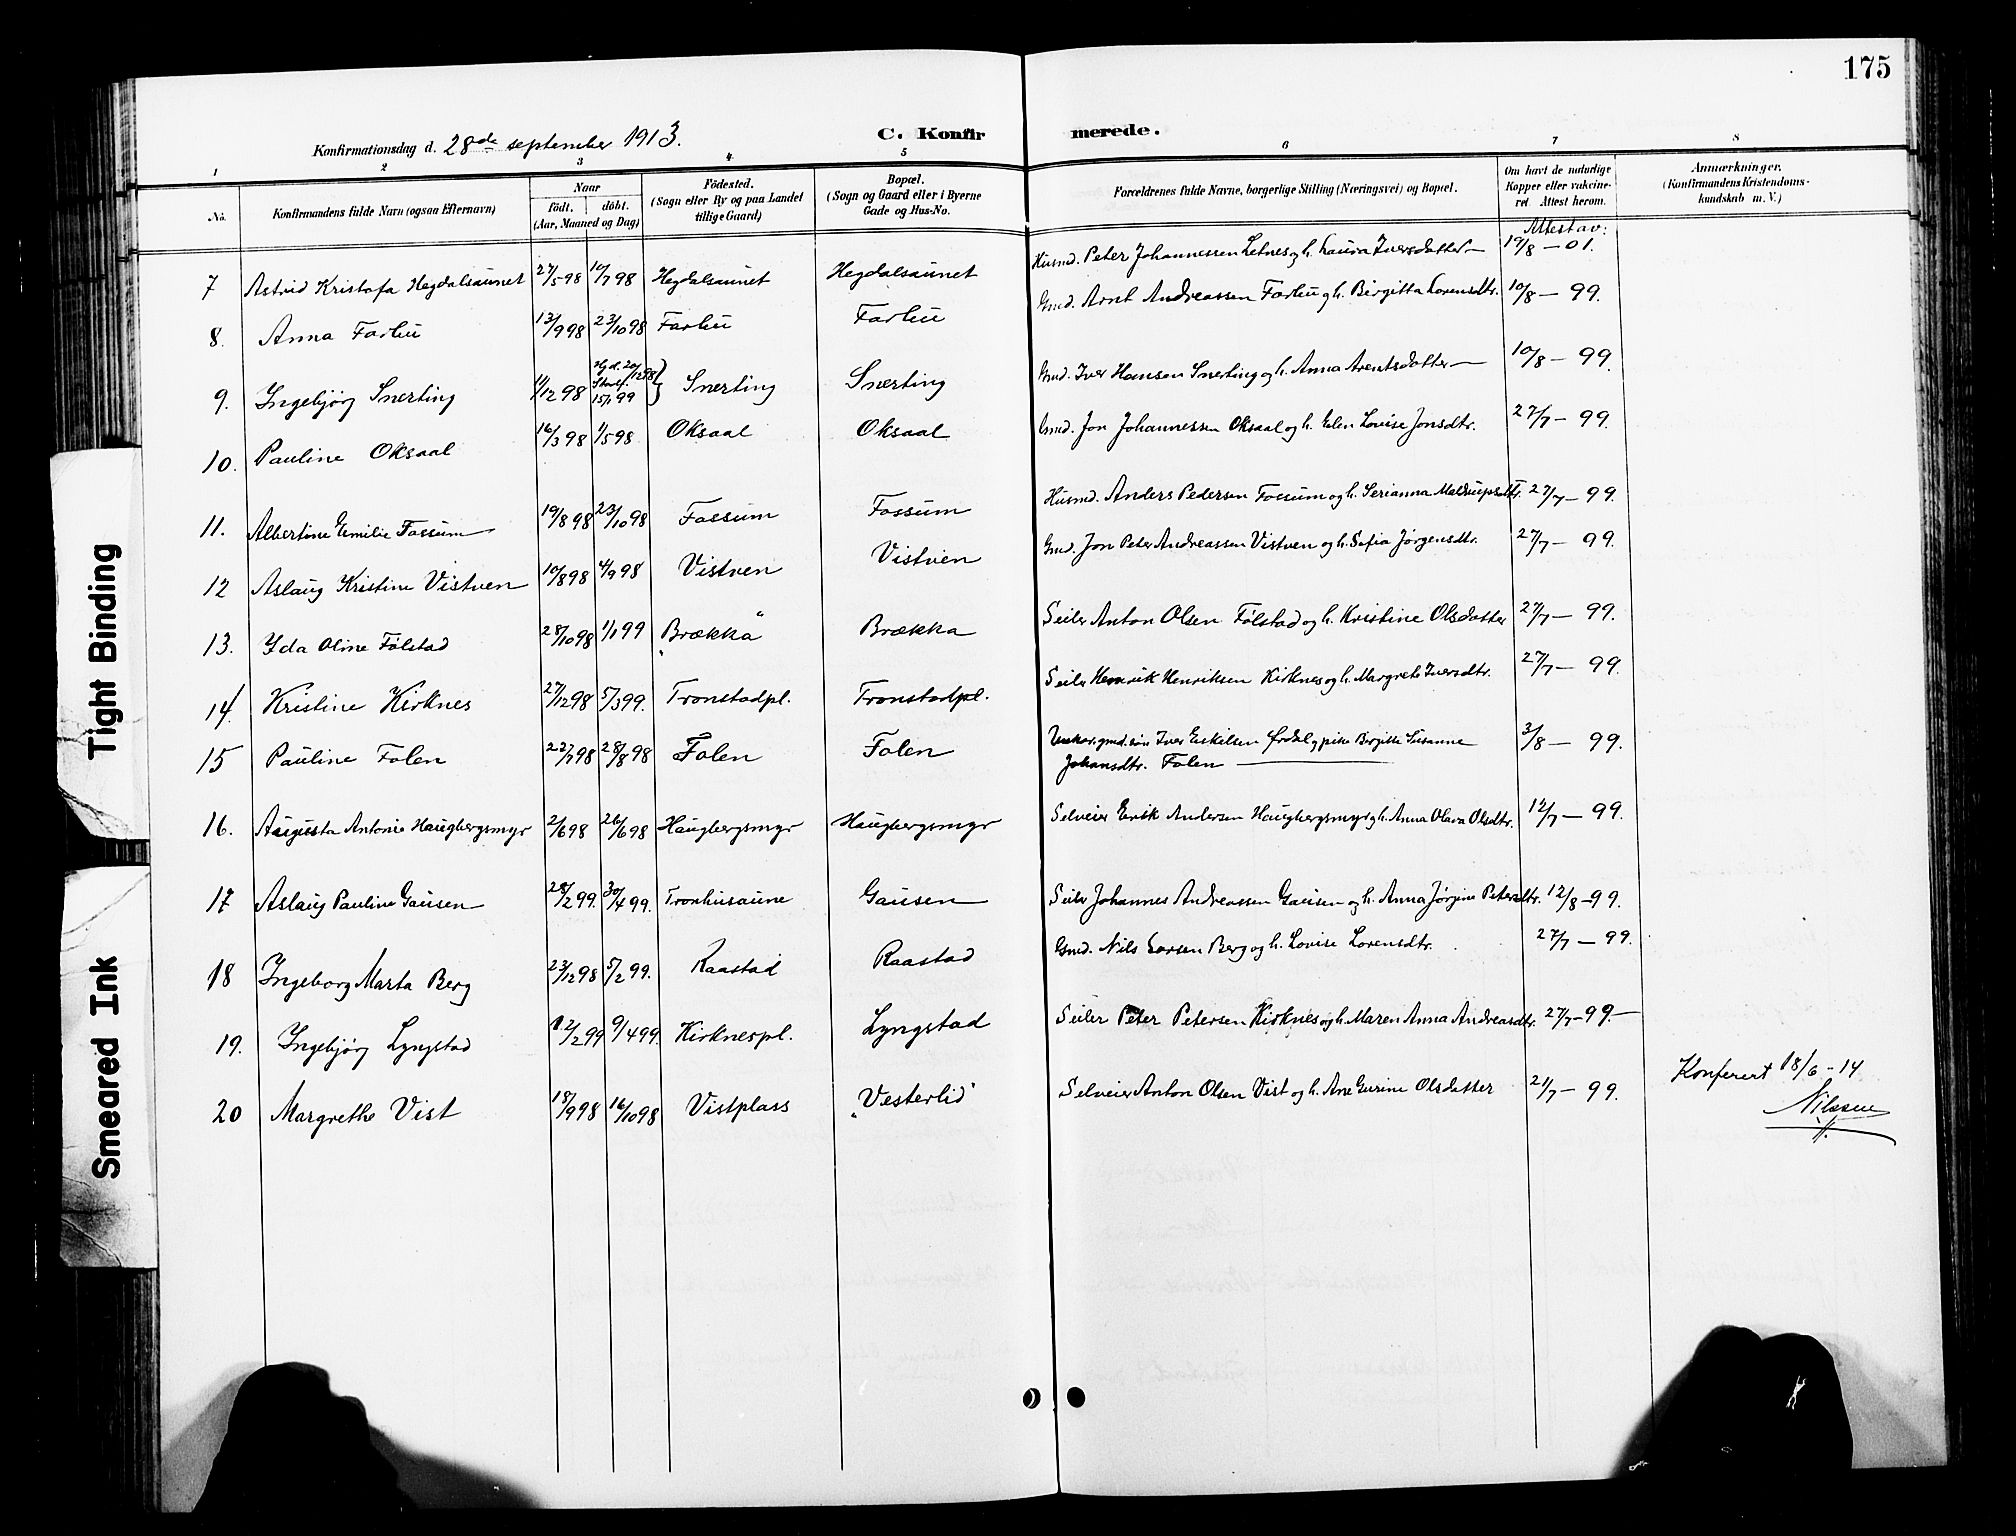 175
Konfirmationsdag d. 28de september 1913.
C. Konfirmerede.
1 2 3 4 5 6 7 8
No. Konfirmandens fulde Navn (ogsaa Efternavn) Naar födt. döbt. (Aar, Maaned og Dag) Födested. (Sogn eller By og paa Landet tillige Gaard) Bopæl. (Sogn og Gaard eller i Byerne Gade og Hus-No. Forældrenes fulde Navne, borgerlige Stilling (Næringsvei) og Bopæl. Om havt de naturlige Kopper eller vakcineret. Attest herom. Anmærkninger. (Konfirmandens Kristendomskundskab m. V.)
Attest av:
7 Astrid Kristofa Hegdalsaunet 27/5 98 10/7 98 Hegdalsaunet Hegdalsaunet Husmd. Peter Johannessen Letnes og h. Laura Iversdatter — 19/8 — 01.
8. Anna Farhu 13/9 98 23/10 98 Farhu Farhu Gmd. Arnt Andreassen Farhu g h. Birgitta Lorensdtr. 10/8 — 99.
9. Ingebjørg Snerting 11/12 98 Hjd. 20/12 98 Stadf. 15/1 99 } Snerting Snerting Gmd. Iver Hansen Snerting og h. Anna Arentsdatter — 10/8 — 99.
10. Pauline Oksaal 16/3 98 1/5 98 Oksaal Oksaal Gmd. Jon Johannessen Oksaal og h. Elen Lovise Jonsdtr. 27/7 — 99.
11. Albertine Emilie Fossum 19/8 98 23/10 98 Fossum Fossum Husmd. Anders Pedersen Fossum og h. Serianna 27/7 — 99.
12 Aslaug Kristine Vistven 10/8 98 4/9 98 Vistven Vistven Gmd. Jon Peter Andreassen Vistven og h. Sofia Jørgensdtr. 27/7 — 99.
13. Ida Oline Følstad 28/10 98 1/1 99 „Brækka“ Brækka Seiler Anton Olsen Følstad og h. Kristine Olsdatter 27/7 — 99.
14. Kristine Kirknes 27/12 98 5/3 99. Tronstadpl. Tronstadpl. Seiler Henrik Henriksen Kirknes og h. Margrete Iversdtr. 27/7 — 99.
15 Pauline Folen 22/7 98 28/8 98 Folen Folen gmd.søn Iver Eskilsen pike Birgitte Susanne 3/8 — 99.
Johansdtr. Folen —
16. Augusta Antonie Haugbergsmyr 2/6 98 26/6 98 Haugbergsmyr Haugbergsmyr Selveier Erik Andersen Haugbergsmyr g h. Anna Olava Olsdtr. 12/7 — 99.
17 Aslaug Pauline Gausen 28/2 99. 30/4 99. Tronhusaune Gausen Seiler Johannes Andreassen Gausen og h. Anna Jørgine Petersdtr. 12/8 — 99.
18 Ingeborg Marta Berg 23/12 98 5/2 99. Raastad Raastad Gmd. Nils Larsen Berg og h. Lovise Lorensdtr. 27/7 — 99.
19. Ingebjørg Lyngstad 12/2 99 9/4 99. Kirknespl. Lyngstad Seiler Peter Petersen Kirknes og h. Maren Anna Andreasdtr. 27/7 — 99 —
20 Margrethe Vist 18/9 98 16/10 98 Vistplass „Vesterlid“ Selveier Anton Olsen Vist og h. Ane Gurine Olsdatter 21/7 — 99. Konferert 18/6 — 14
Nilssen
Tight Binding
Smeared Ink